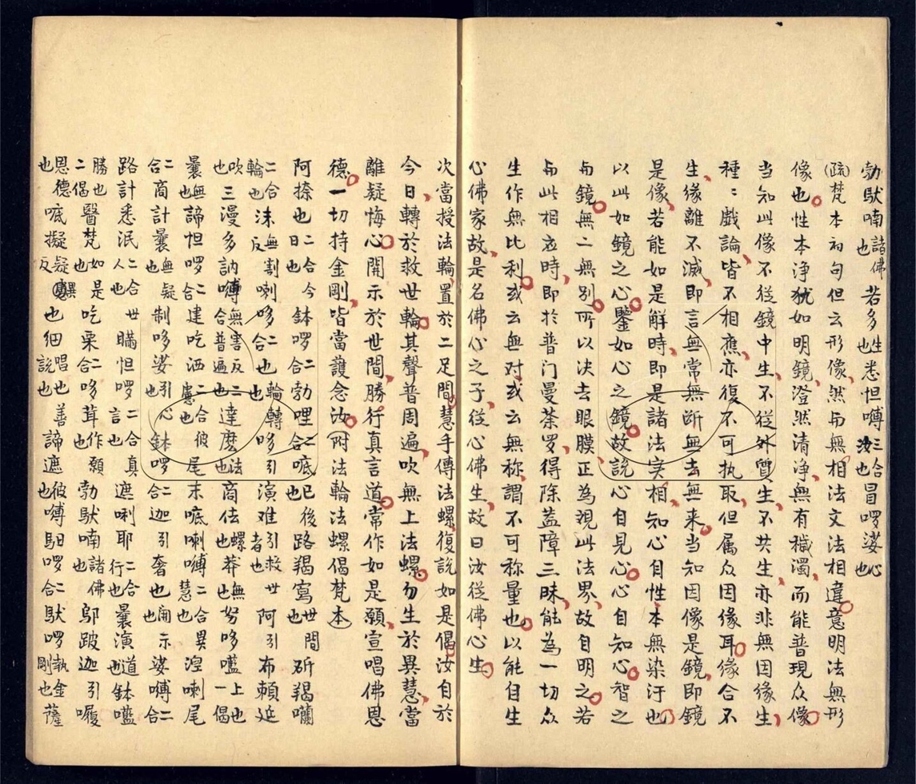 勃馱喃諸佛也若多也性悉怛嚩三合汝也冒囉娑也心
疏梵本初句但云形像然而無相法文法相違意明法無形
像也性本淨猶如明鏡澄然清淨無有穢濁而能普現众像
当知此像不從鏡中生不從外質生不共生亦非無因緣生
種〻戲論皆不相應亦復不可执取但属众因緣耳緣合不
生緣離不滅即言無常無断無去無来当知因像是鏡即鏡
是像若能如是解時即是諸法实相知心自性本無染汙也
以此如鏡之心鑒如心之鏡故説心自見心心自知心智之
与鏡無二無別所以决去眼膜正為現此法界故自明之若
与此相应時即於普门曼荼罗得除蓋障三昧能為一切众
生作無比利或云無对或云無称謂不可称量也以能自生
心佛家故是名佛心之子從心佛生故曰汝從佛心生
次當授法輪置於二足間慧手傳法螺復說如是偈汝自於
今日轉於救世輪其聲普周遍吹無上法螺勿生於異慧當
離疑悔心開示於世間勝行真言道常作如是願宣唱佛恩
德一切持金剛皆當護念汝所法輪法螺偈梵本
阿捺也二合今日鉢囉二合勃哩二合底已後路羯寫世間斫羯囒
二合輪也沫無割反喇哆合也輪轉哆引演难者也引救世阿引布頼延
吹也三漫多訥嚩無害反合普遍也二達麽也法商佉也螺莽也無努哆嚂上也一偈
曩無也諦怛囉二合違吃洒二合慮也彼尾末底喇嚩二合慧也異涅喇尾
二合商計曩無疑也制哆娑引心也鉢囉二合迦引奢也開示也娑嚩二合
路計悉泯二合人也世瞞怛囉二合真言也遮喇耶二合行也曩演道也鉢嚂
勝也二偈醫梵如是也吃栗二合哆茸作願也勃馱喃諸佛也邬跛迦引嚘
恩德也底擬疑異反也佃唱也説也善諦遮彼也嚩馹囉二合馱囉執金剛也薩